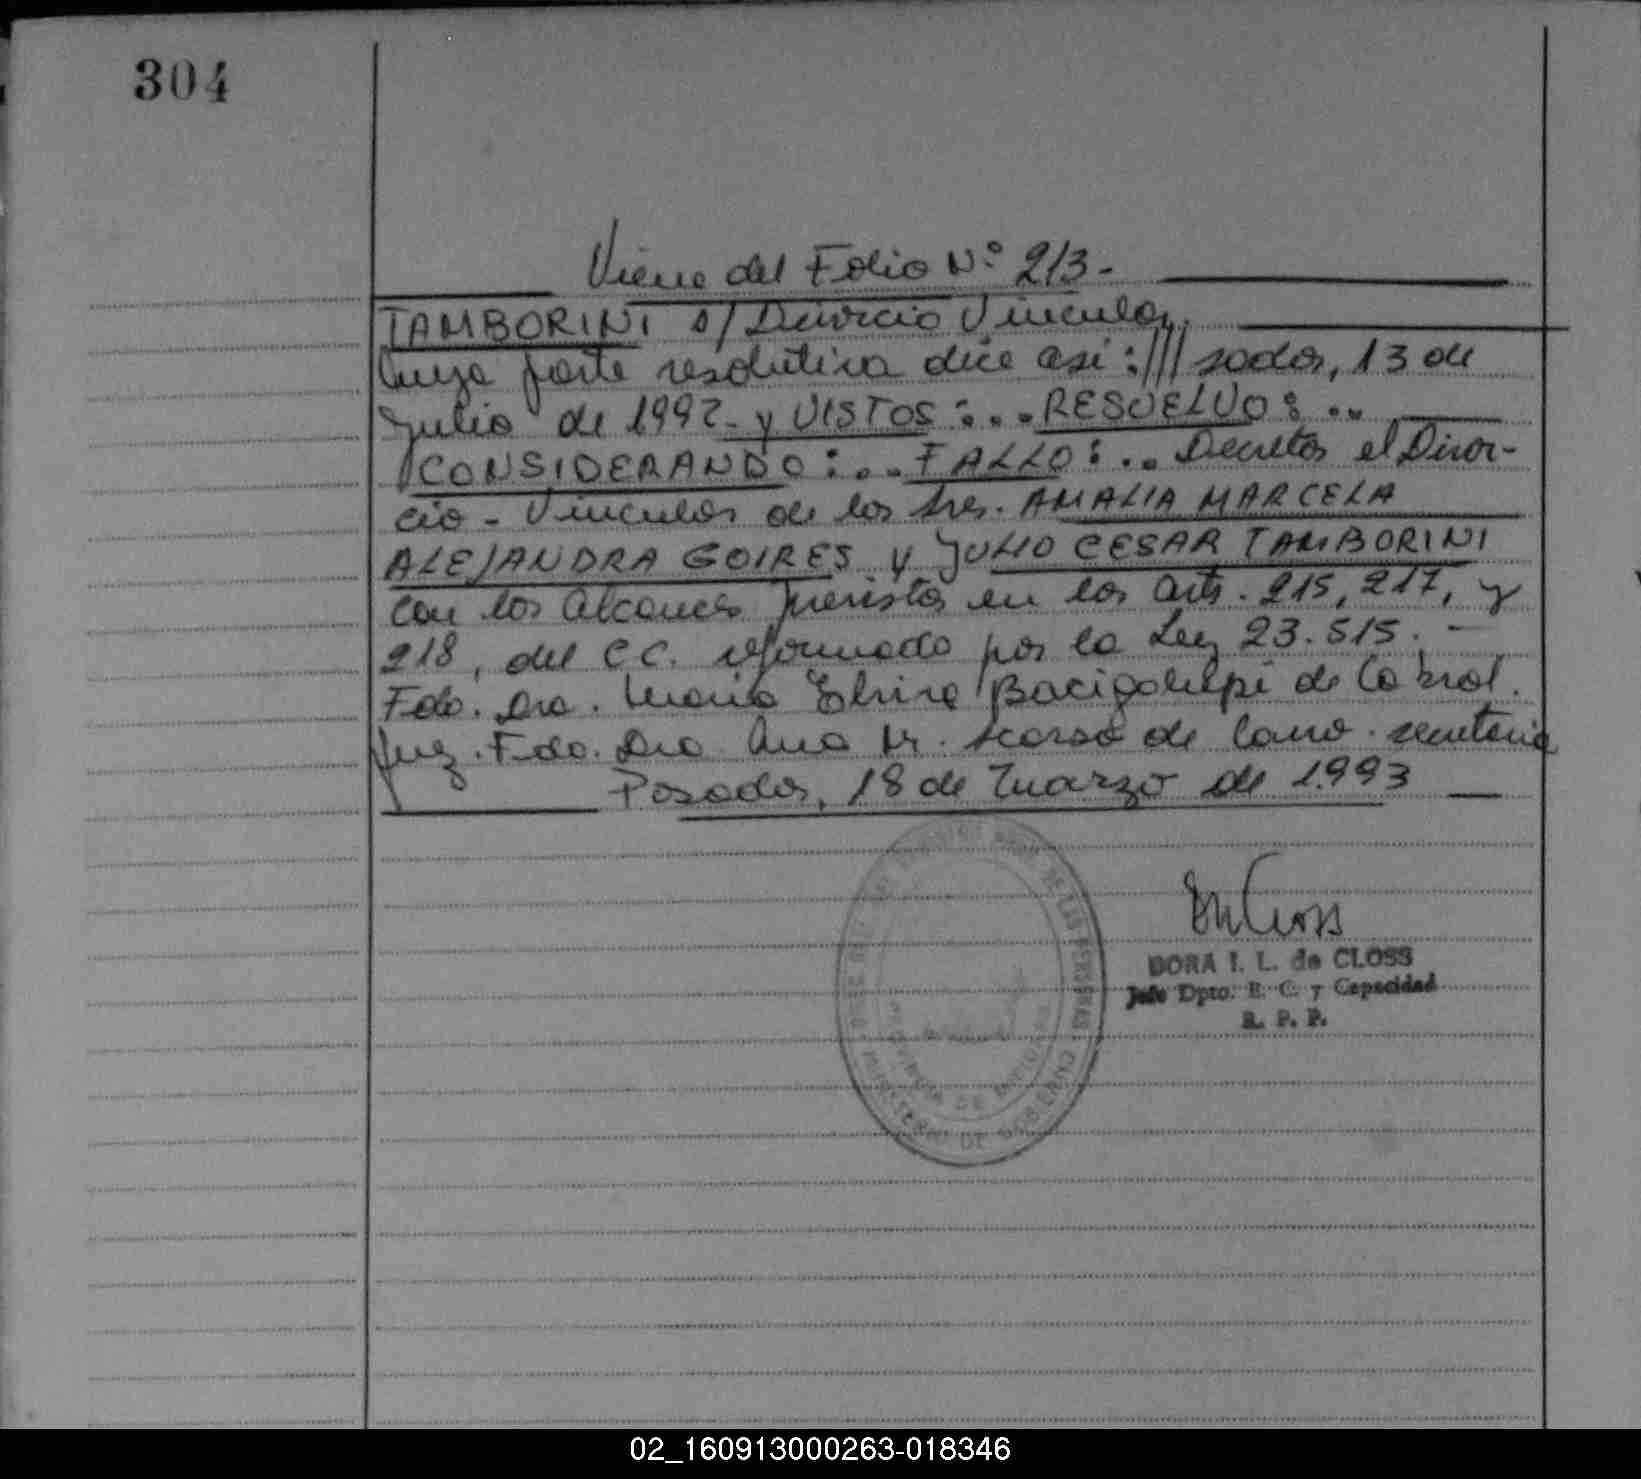 304
Viene del Folio Nº 213.-
TAMBORINI s/ Divorcio Vincular.
Cuya parte resolutiva dice asi:///sadas, 13 de
Julio de 1992.- y VISTOS:... RESUELVO:..
CONSIDERANDO:... FALLO:... Decretar el Divor-
cio - Vincular de los Sres. AMALIA MARCELA
ALEJANDRA GOIRES y JULIO CESAR TAMBORINI
con los alcances previstos en los arts. 215, 217, y
218, del C C. reformado por la Ley 23.515. -
Fdo. Dra. Maria Elvira Bacigalupi de Cabral.
Juez. Fdo. Dra Ana M. de secretaria
Posadas, 18 de Marzo de 1.993
DORA I. L. de CLOSS
Jefe Dpto. E. C. y Capacidad
R. P. P.
DE LAS PERSONAS
PROVINCIA DE MISIONES
MINISTERIO DE GOBIERNO
02_160913000263-018346